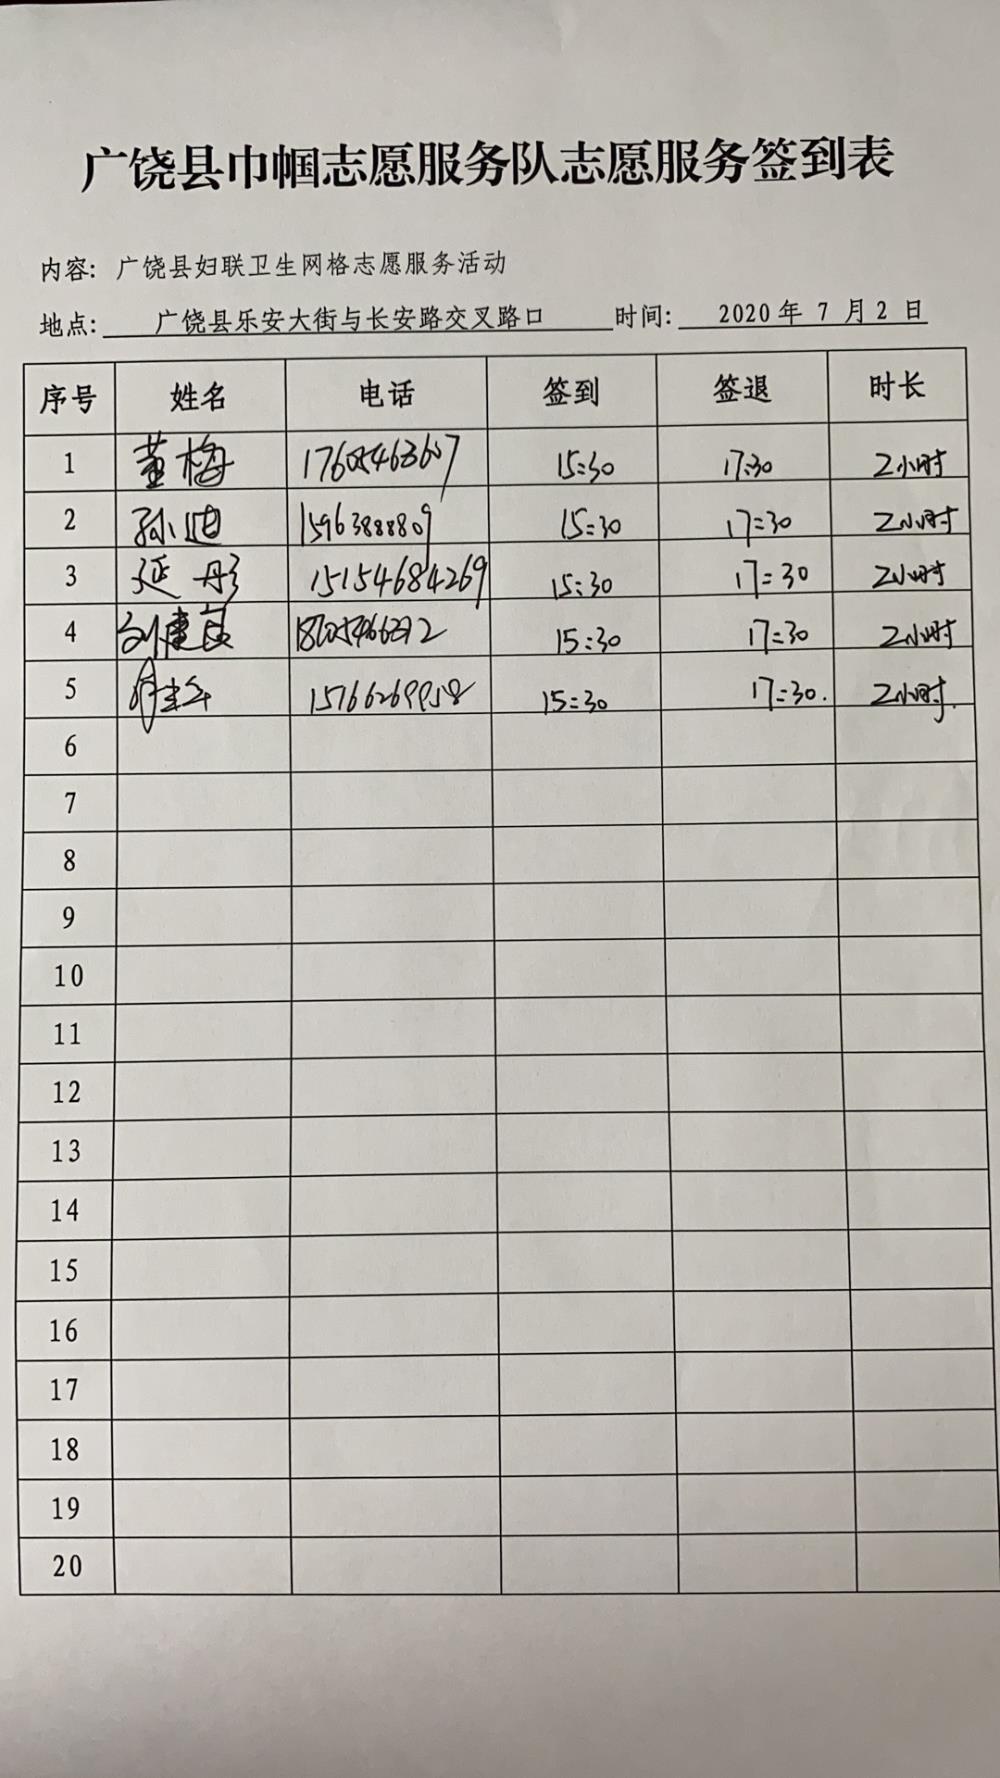 广饶县巾帼志愿服务队志愿服务签到表
内容: 广饶县妇联卫生网格志愿服务活动
地点: 广饶县乐安大街与长安路交叉路口 时间: 2020 年 7 月 2 日
序号 姓名 电话 签到 签退 时长
1 董梅 17605463607 15:30 17:30 2小时
2 孙迪 15963888809 15:30 17:30 2小时
3 延彤 15154684269 15:30 17:30 2小时
4 刘建良 15:30 17:30 2小时
5 15766269958 15:30 17:30. 2小时.
6
7
8
9
10
11
12
13
14
15
16
17
18
19
20